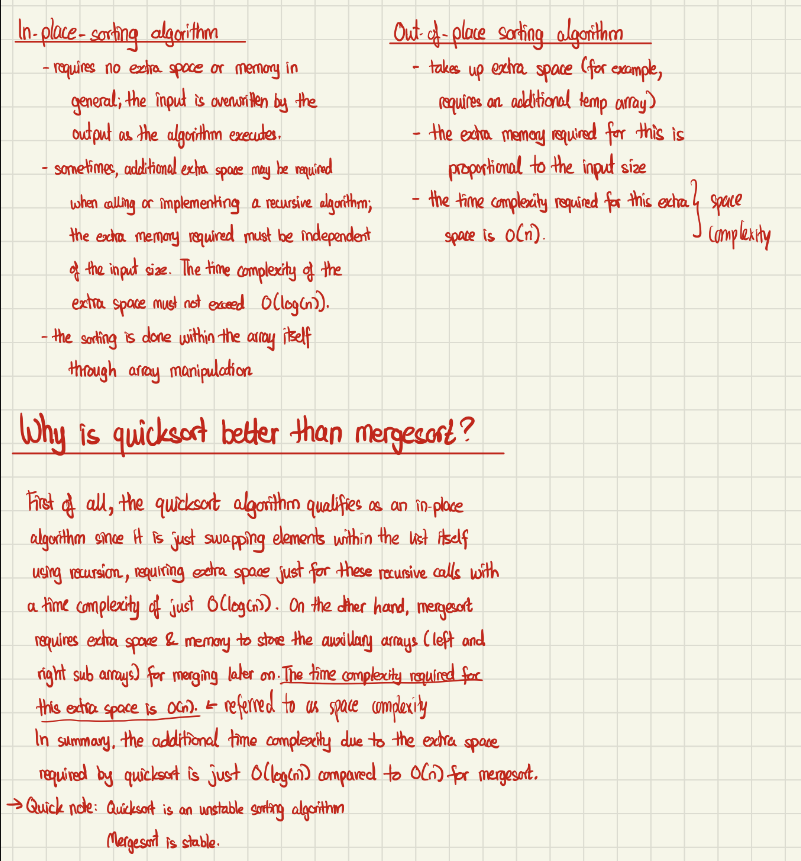 In-place-sorting algorithm
- requires no extra space or memory in
general; the input is overwritten by the
output as the algorithm executes.
- sometimes, additional extra space may be required
when calling or implementing a recursive algorithm;
the extra memory required must be independent
of the input size. The time complexity of the
extra space must not exceed O(log(n)).
- the sorting is done within the array itself
through array manipulation
Out-of-place sorting algorithm
- takes up extra space (for example,
requires an additional temp array)
- the extra memory required for this is
proportional to the input size
- the time complexity required for this extra
space is O(n).
space
complexity
Why is quicksort better than mergesort?
First of all, the quicksort algorithm qualifies as an in-place
algorithm since it is just swapping elements within the list itself
using recursion, requiring extra space just for these recursive calls with
a time complexity of just O(log(n)). On the other hand, mergesort
requires extra space & memory to store the auxillary arrays (left and
right sub arrays) for merging later on. The time complexity required for
this extra space is O(n). ← referred to as space complexity
In summary, the additional time complexity due to the extra space
required by quicksort is just O(log(n)) compared to O(n) for mergesort.
→ Quick note: Quicksort is an unstable sorting algorithm
Mergesort is stable.